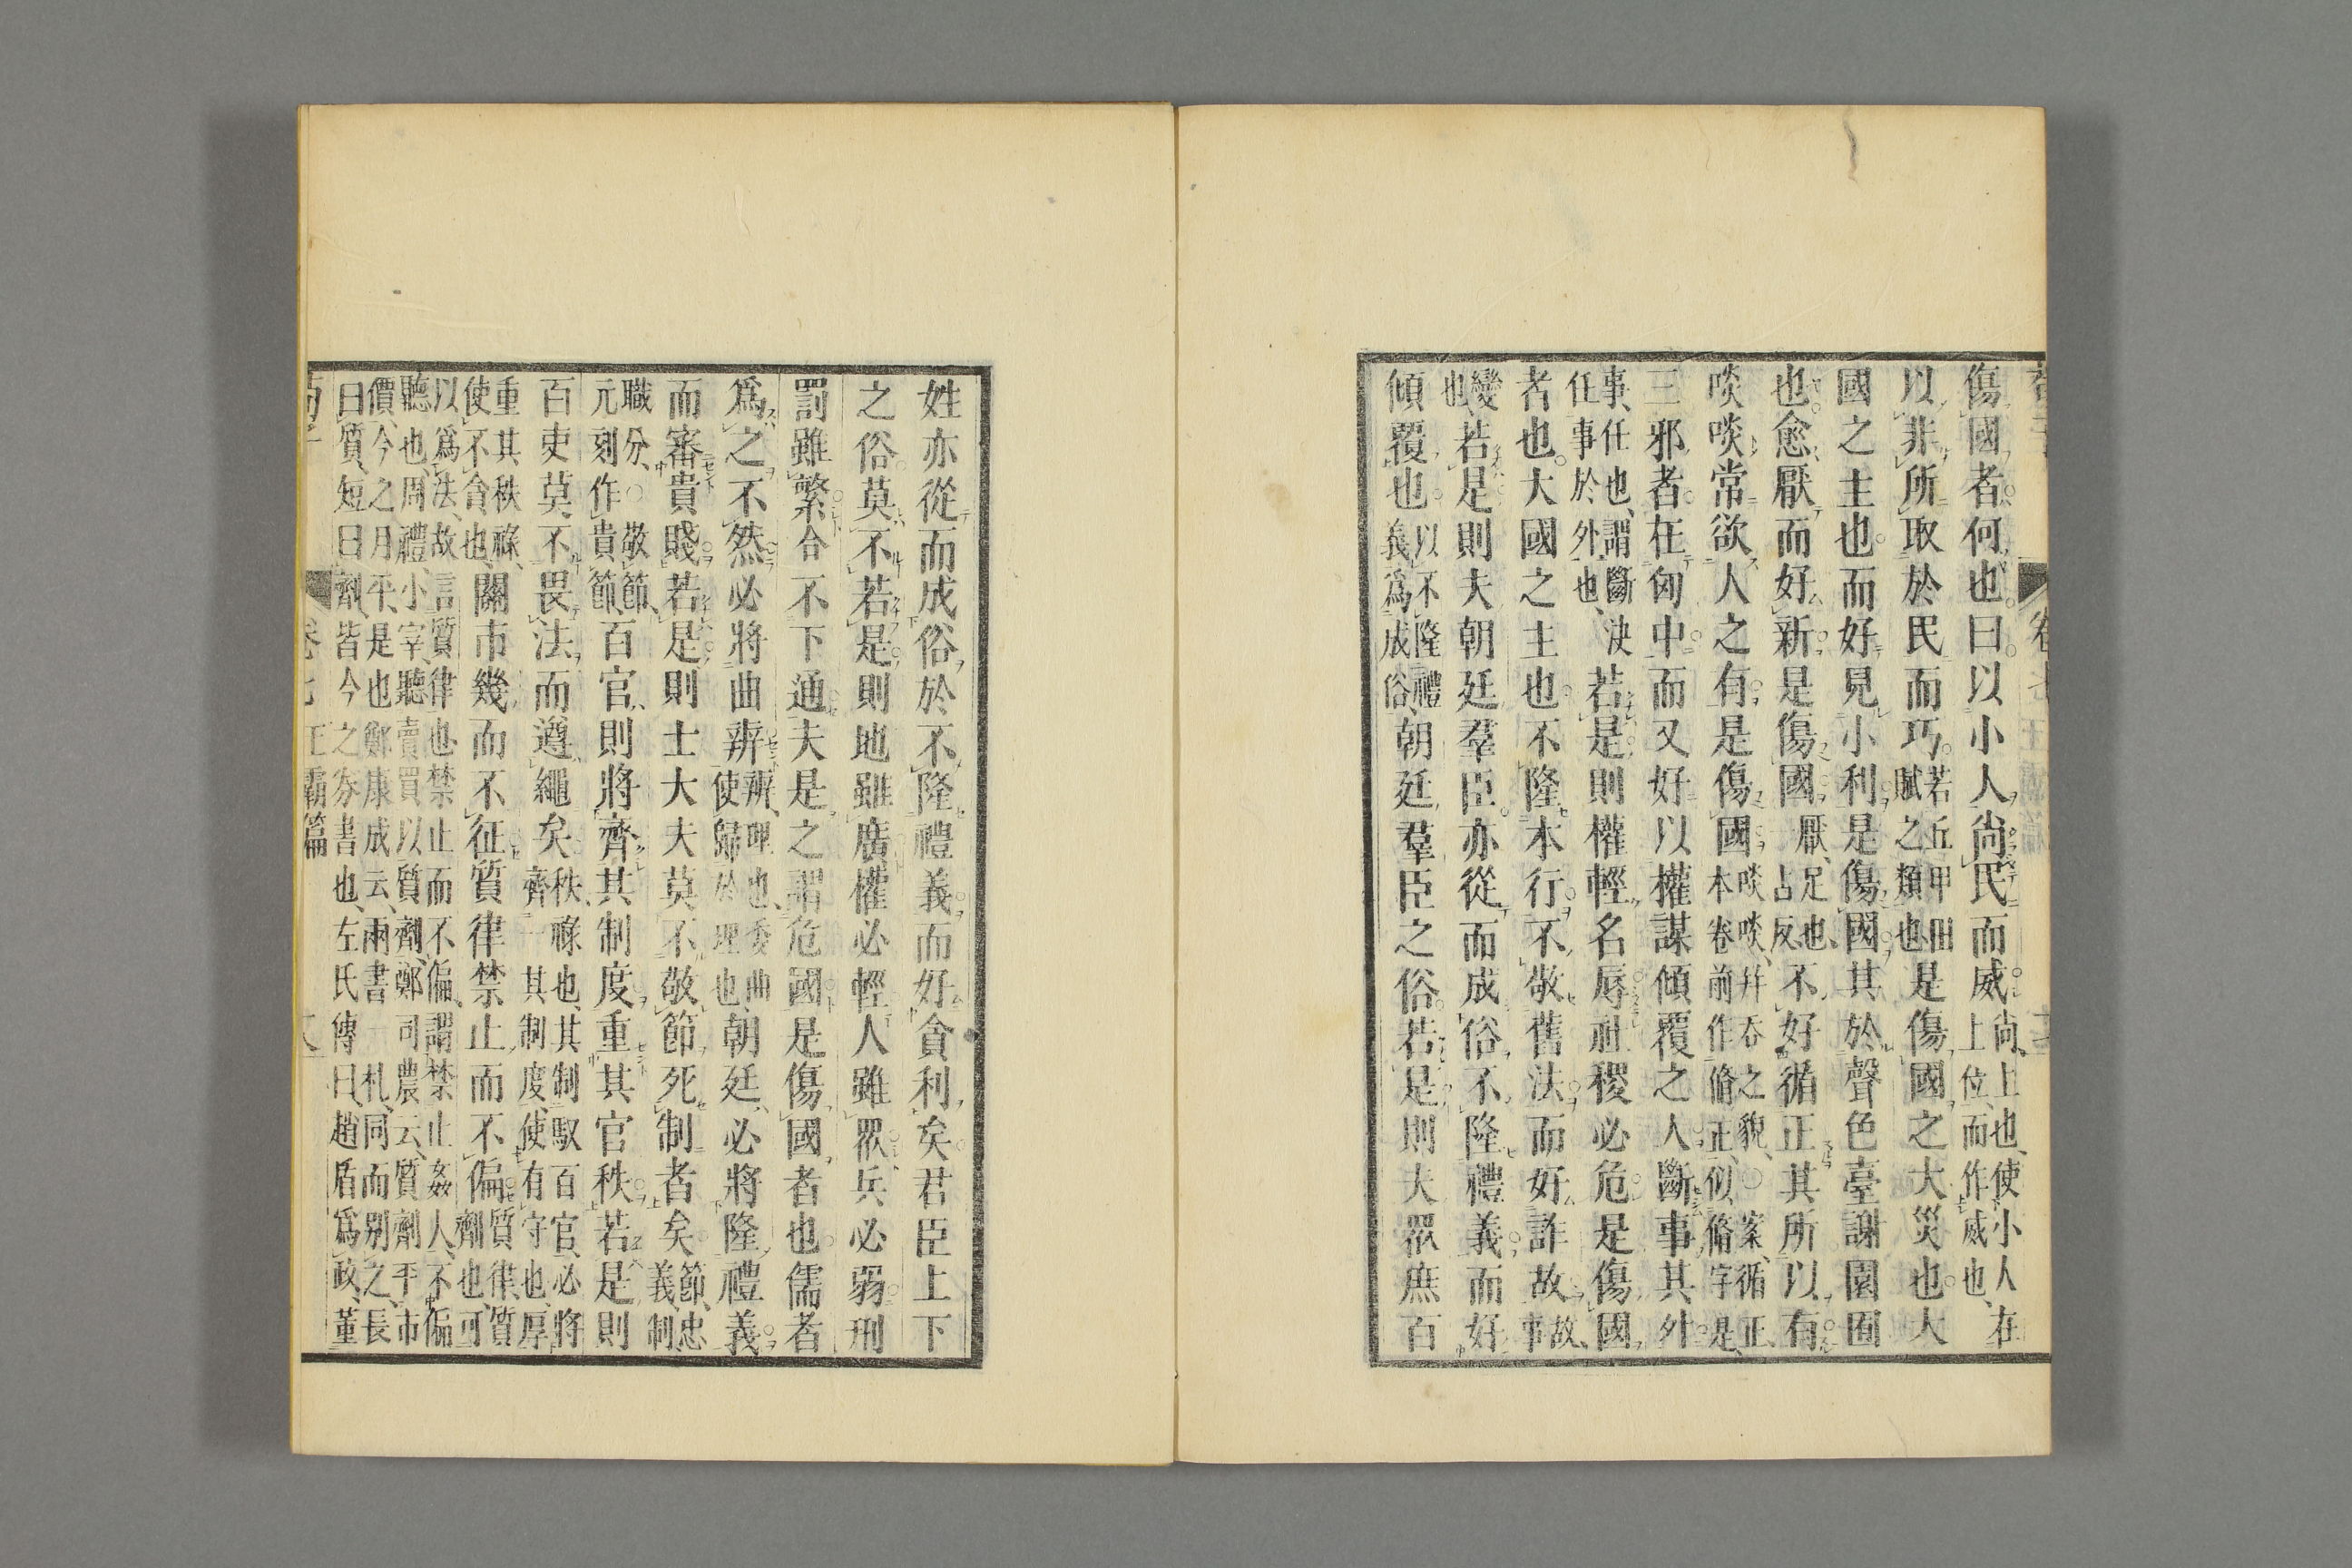 傷國者何也曰以小人尚民而威尚上也使小人在上位而作威也
以非所取於民而巧若丘甲田賦之類也是傷國之大災也大
國之主也而好見小利是傷國其於聲色臺謝園囿
也愈厭而好新是傷國厭足也一占反不好循正其所以有
啖啖常欲人之有是傷國啖啖幷吞之貌○案循正本卷前作脩正似脩字是
三邪者在匈中而又好以權謀傾覆之人斷事其外
事任也謂斷決任事於外也若是則權輕名辱社稷必危是傷國
者也大國之主也不隆本行不敬舊法而好詐故故事
變也若是則夫朝廷羣臣亦從而成俗不隆禮義而好
傾覆也以不隆禮義爲成俗朝廷羣臣之俗若是則夫眾庶百
姓亦從而成俗於不隆禮義而好貪利矣君臣上下
之俗莫不若是則地雖廣權必輕人雖眾兵必弱刑
罰雖繁令不下通夫是之謂危國是傷國者也儒者
爲之不然必將曲辨辨理也委曲使歸於理也朝廷必將隆禮義
而審貴賤若是則士大夫莫不敬節死制者矣節忠義制
職分○敬節元刻作貴節百官則將齊其制度重其官秩若是則
百吏莫不畏法而遵繩矣秩祿也其制馭百官必將齊一其制度使有守也厚
重其秩祿使不貪也關市幾而不征質律禁止而不偏質律質劑也可
以爲法故言質律也禁止而不偏謂禁止姦人不偏
聽也周禮小宰聽賣買以質劑鄭司農云質劑平市
價今之月平是也鄭康成云兩書一札同而別之長
曰質短曰劑皆今之券書也左氏傳曰趙盾爲政董
卷七 王霸篇